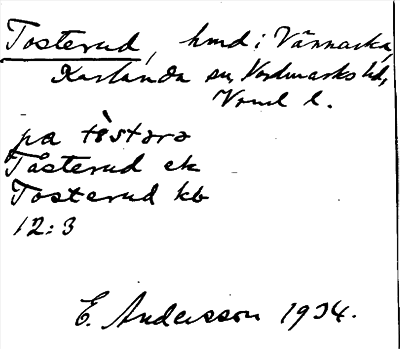 Tosterud, hmd i Vännacka,
Karlanda sn, Nordmarks hd,
Verml l.
pa tòstərə
Tåsterud ek
Tosterud kb
12:3
E. Andersson 1934.